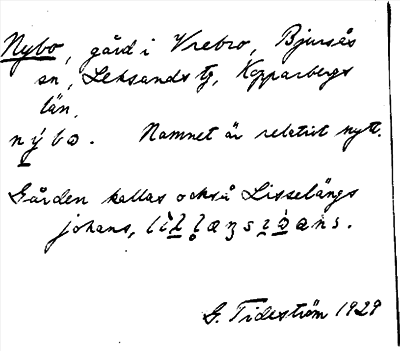 Nybo, gård i Vrebro, Bjursås
sn, Leksands tg, Kopparbergs
län.
nýbo. Namnet är relativt nytt.
Gården kallas också Lisselängs
johans,
G. Tideström 1929